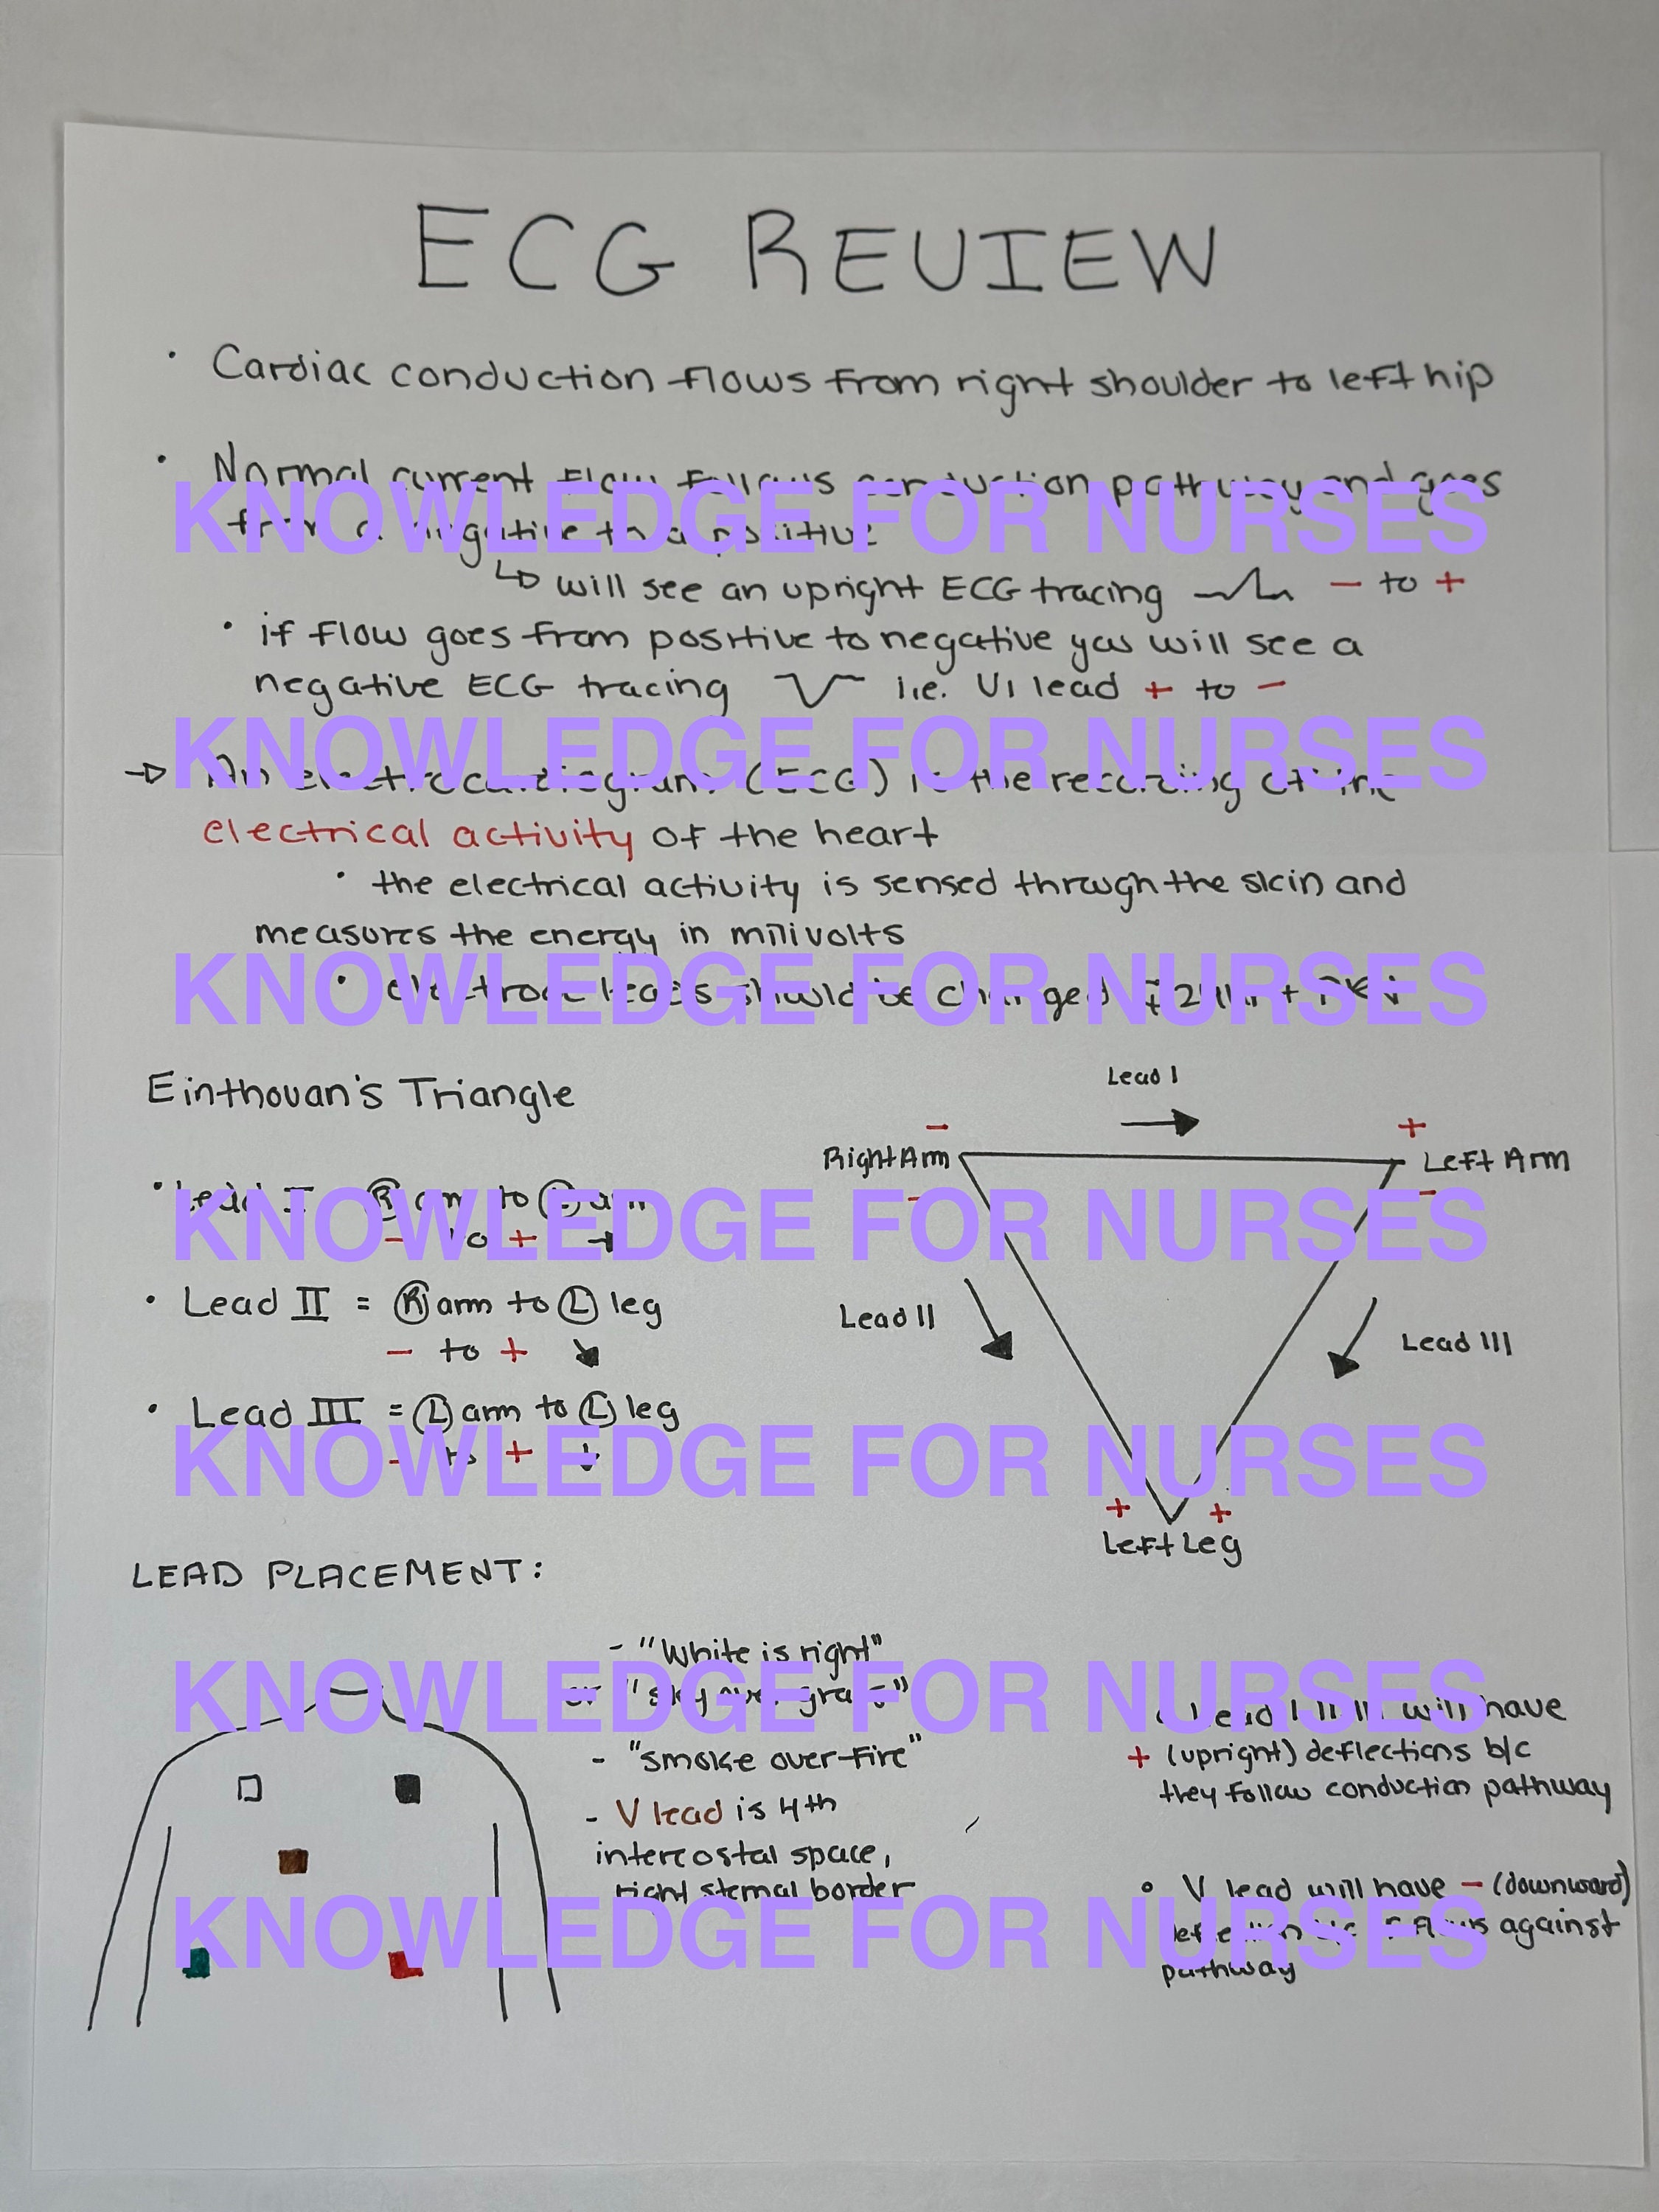 ECG REVIEW
• Cardiac conduction flows from right shoulder to left hip
• Normal current flow follows conduction pathway and goes
from a negative to a positive
↳ will see an upright ECG tracing − to +
• if flow goes from positive to negative you will see a
negative ECG tracing i.e. V1 lead + to −
→ An electrocardiogram (ECG) is the recording of the
electrical activity of the heart
• the electrical activity is sensed through the skin and
measures the energy in milivolts
• electrode leads should be changed q 24hr + PRN
Einthovan's Triangle
• Lead I = Ⓡ arm to Ⓛ arm
− to + →
• Lead II = Ⓡ arm to Ⓛ leg
− to + ↘
• Lead III = Ⓛ arm to Ⓛ leg
− to + ↓
Lead I
→
− +
Right Arm Left Arm
− −
Lead II
Lead III
+ +
Left Leg
LEAD PLACEMENT:
- "White is right"
or "sky over grass"
- "smoke over fire"
- V lead is 4th
intercostal space,
right sternal border
• Lead I II III will have
+ (upright) deflections b/c
they follow conduction pathway
• V lead will have − (downward)
deflection b/c it flows against
pathway
KNOWLEDGE FOR NURSES
KNOWLEDGE FOR NURSES
KNOWLEDGE FOR NURSES
KNOWLEDGE FOR NURSES
KNOWLEDGE FOR NURSES
KNOWLEDGE FOR NURSES
KNOWLEDGE FOR NURSES